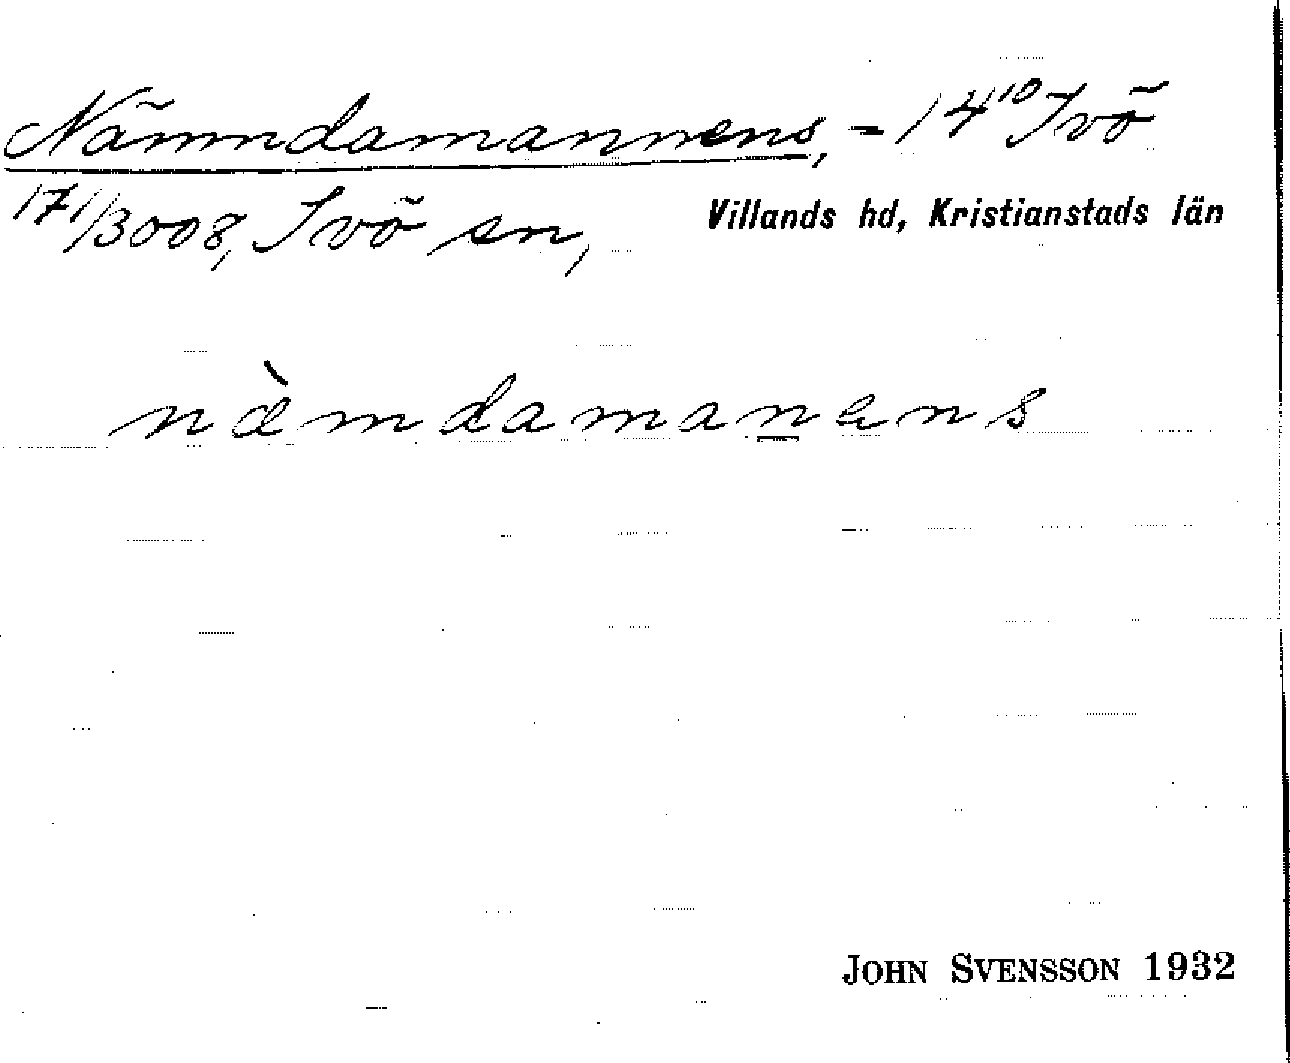 Nämndamannens, - 14¹⁰ Ivö
17 1/3008, Ivö sn, Villands hd, Kristianstads län
næ̀mdamaṉens
JOHN SVENSSON 1932